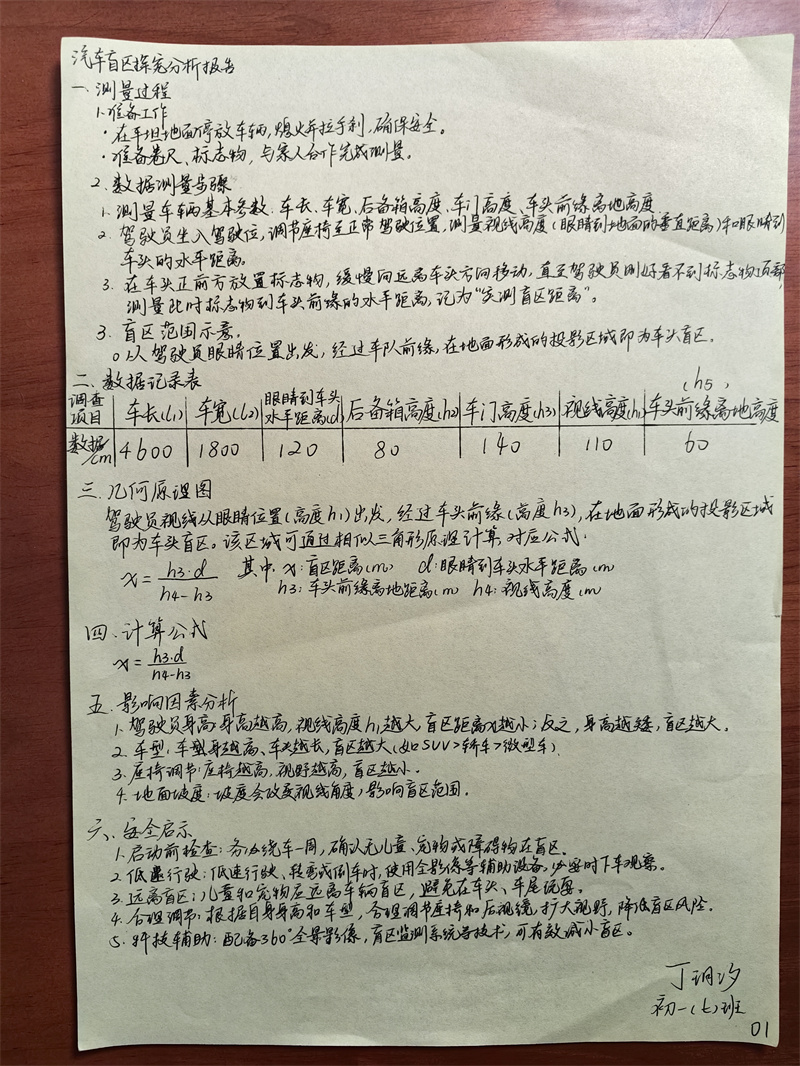 汽车盲区探究分析报告
一、测量过程
1.准备工作
·在平坦地面停放车辆,熄火并拉手刹,确保安全。
·准备卷尺、标志物,与家人合作完成测量。
2.数据测量步骤
1.测量车辆基本参数:车长、车宽、后备箱高度、车门高度、车头前缘离地高度.
2.驾驶员坐入驾驶位,调节座椅至正常驾驶位置,测量视线高度(眼睛到地面的垂直距离)和眼睛到
车头的水平距离.
3.在车头正前方放置标志物,缓慢向远离车头方向移动,直至驾驶员刚好看不到标志物顶部,
测量此时标志物到车头前缘的水平距离,记为“实测盲区距离”。
3.盲区范围示意.
○以从驾驶员眼睛位置出发,经过车队前缘,在地面形成的投影区域即为车头盲区.
二、数据记录表
(h5)
调查项目 车长(l1) 车宽(l2) 眼睛到车头水平距离(d) 后备箱高度(h2) 车门高度(h3) 视线高度(h1) 车头前缘离地高度
数据/cm 4600 1800 120 80 140 110 60
三.几何原理图
驾驶员视线从眼睛位置(高度h1)出发,经过车头前缘(高度h3),在地面形成的投影区域
即为车头盲区。该区域可通过相似三角形原理计算,对应公式:
x=h3·d/h4-h3 其中,x:盲区距离(m) d:眼睛到车头水平距离(m)
h3:车头前缘离地距离(m) h4:视线高度(m)
四.计算公式
x=h3·d/h4-h3
五.影响因素分析
1.驾驶员身高:身高越高,视线高度h1越大,盲区距离x越小;反之,身高越矮,盲区越大.
2.车型:车型身越高、车头越长,盲区越大(如SUV>轿车>微型车).
3.座椅调节:座椅越高,视野越高,盲区越小.
4.地面坡度:坡度会改变视线角度,影响盲区范围.
六、安全启示
1.启动前检查:务必绕车一周,确认无儿童、宠物或障碍物在盲区.
2.低速行驶:低速行驶、转弯或倒车时,使用全影像等辅助设备,必要时下车观察.
3.远离盲区:儿童和宠物应远离车辆盲区,避免在车头、车尾玩耍.
4.合理调节:根据自身身高和车型,合理调节座椅和后视镜,扩大视野,降低盲区风险.
5.科技辅助:配备360°全景影像,盲区监测系统等技术,可有效减小盲区。
丁玥汐
初一(七)班
01